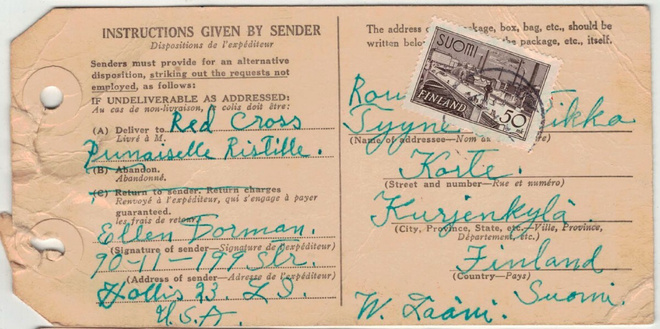 INSTRUCTIONS GIVEN BY SENDER
Dispositions de l'expéditeur
Senders must provide for an alternative
disposition, striking out the requests not
employed, as follows:
IF UNDELIVERABLE AS ADDRESSED:
Au cas de non-livraison, le colis doit être:
(A) Deliver to Red Cross
Livré à M.
Punaiselle Ristille.
(B) Abandon.
Abandonné.
(C) Return to sender. Return charges
Renvoyé à l'expéditeur, qui s'engage à payer
guaranteed.
les frais de retour.
Ellen Dorman.
(Signature of sender—Signature de l'expéditeur)
90-11-199 Str.
(Address of sender—Adresse de l'expéditeur)
Hollis 23. L.I.
U.S.A.
The address of package, box, bag, etc., should be
written below the package, etc., itself.
SUOMI
FINLAND
50
Rou
Tyyne ikka
(Name of addressee—Nom
Koite.
(Street and number—Rue et numéro)
Kurjenkylä.
(City, Province, State, etc.—Ville, Province,
Département, etc.)
Finland
(Country—Pays)
Suomi.
W. Lääni.